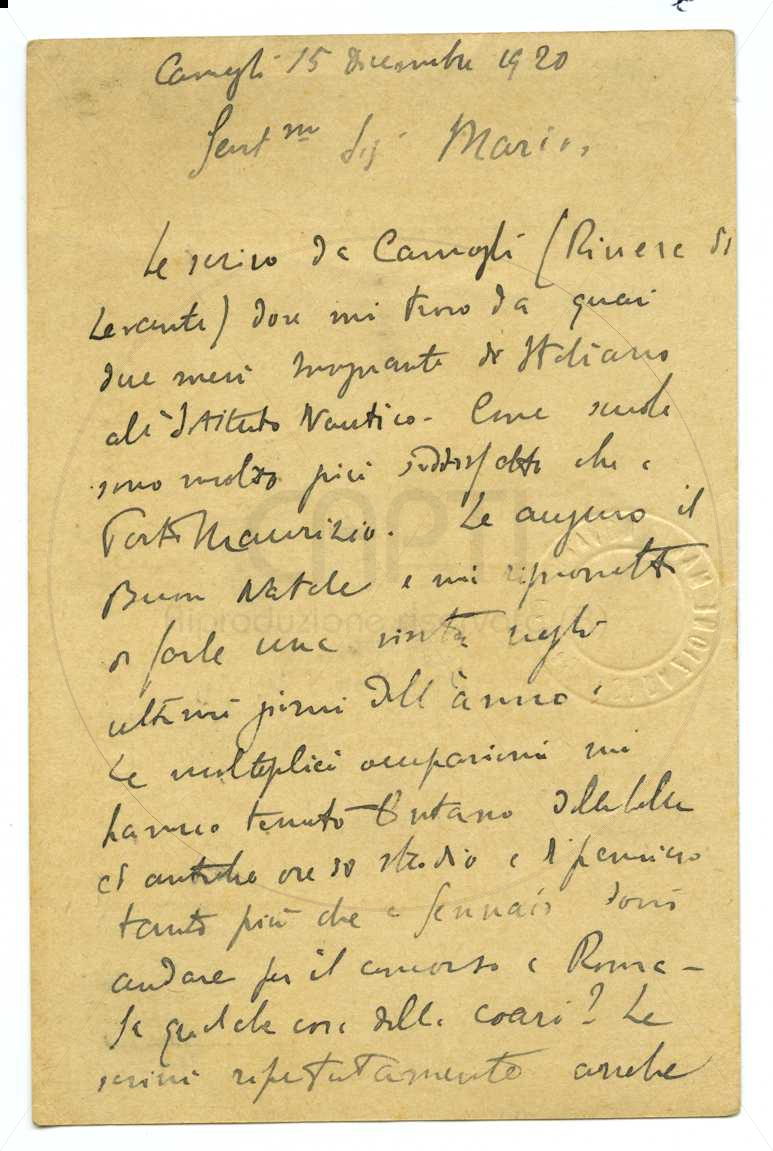 Camogli 15 dicembre 1920
Gent.mo Sig. Mario,
Le scrivo da Camogli (Riviera di
Levante) dove mi trovo da quasi
due mesi insegnante di Italiano
all'Istituto Nautico. Come scuola
sono molto più soddisfatto che a
Porto Maurizio. Le auguro il
Buon Natale e mi riprometto
di farle una visita negli
ultimi giorni dell'anno.
Le molteplici occupazioni mi
hanno tenuto lontano dalle belle
ed antiche ore di studio e di pensiero
tanto più che a Gennaio dovrò
andare per il concorso a Roma -
Sa qualche cosa della Coari? Le
scrissi ripetutamente anche
CAPTI
Riproduzione riservata